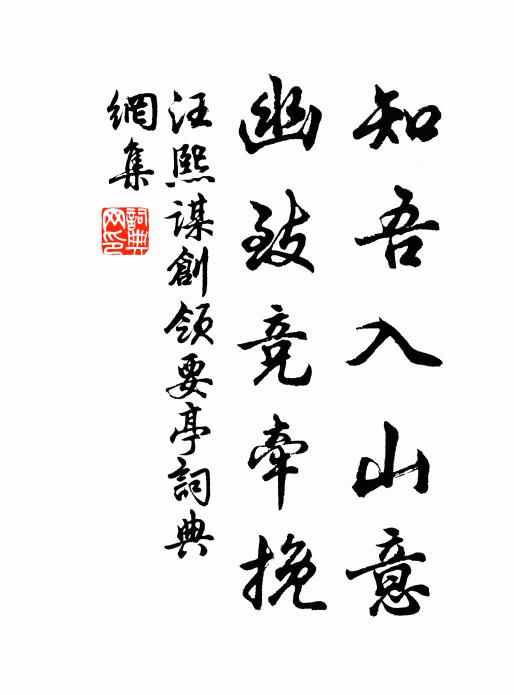 知吾入山意
幽致竞牵挽
汪熙谋創領要亭詞典
網集
詞典
网印